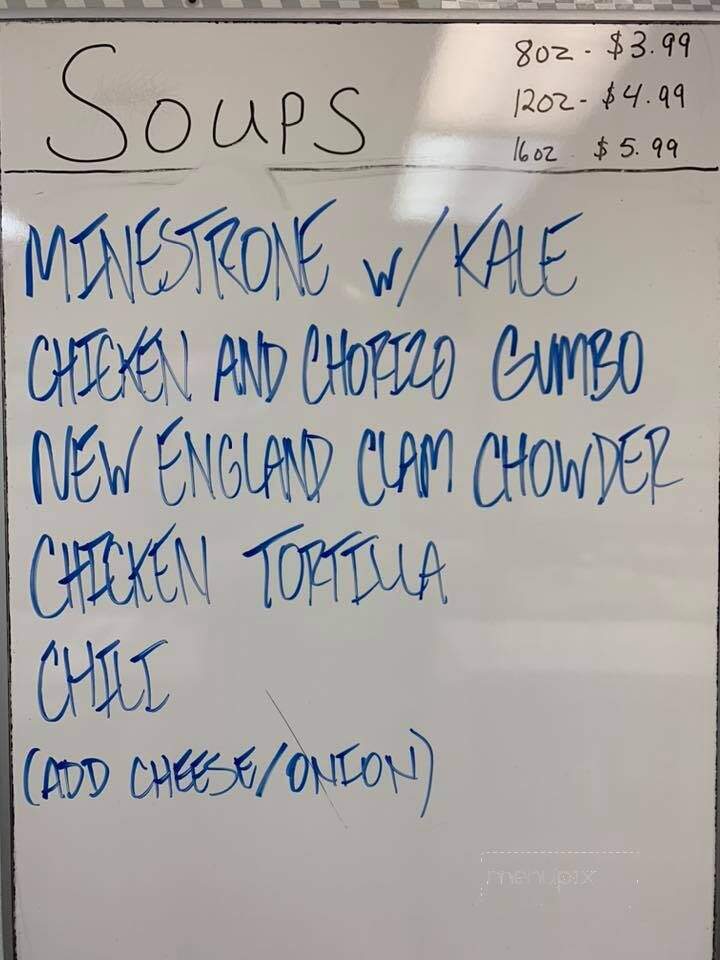 SOUPS
8oz - $3.99
12oz - $4.99
16oz $5.99
MINESTRONE w/ KALE
CHICKEN AND CHORIZO GUMBO
NEW ENGLAND CLAM CHOWDER
CHICKEN TORTILLA
CHILI
(ADD CHEESE/ONION)
menupix